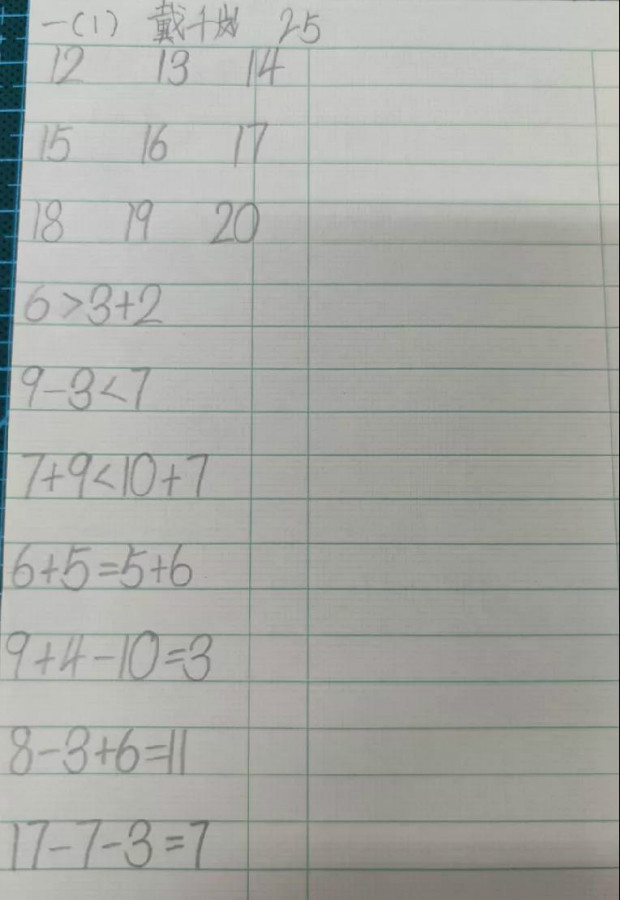 一(1) 戴千 25
12 13 14
15 16 17
18 19 20
6>3+2
9-3<7
7+9<10+7
6+5=5+6
9+4-10=3
8-3+6=11
17-7-3=7